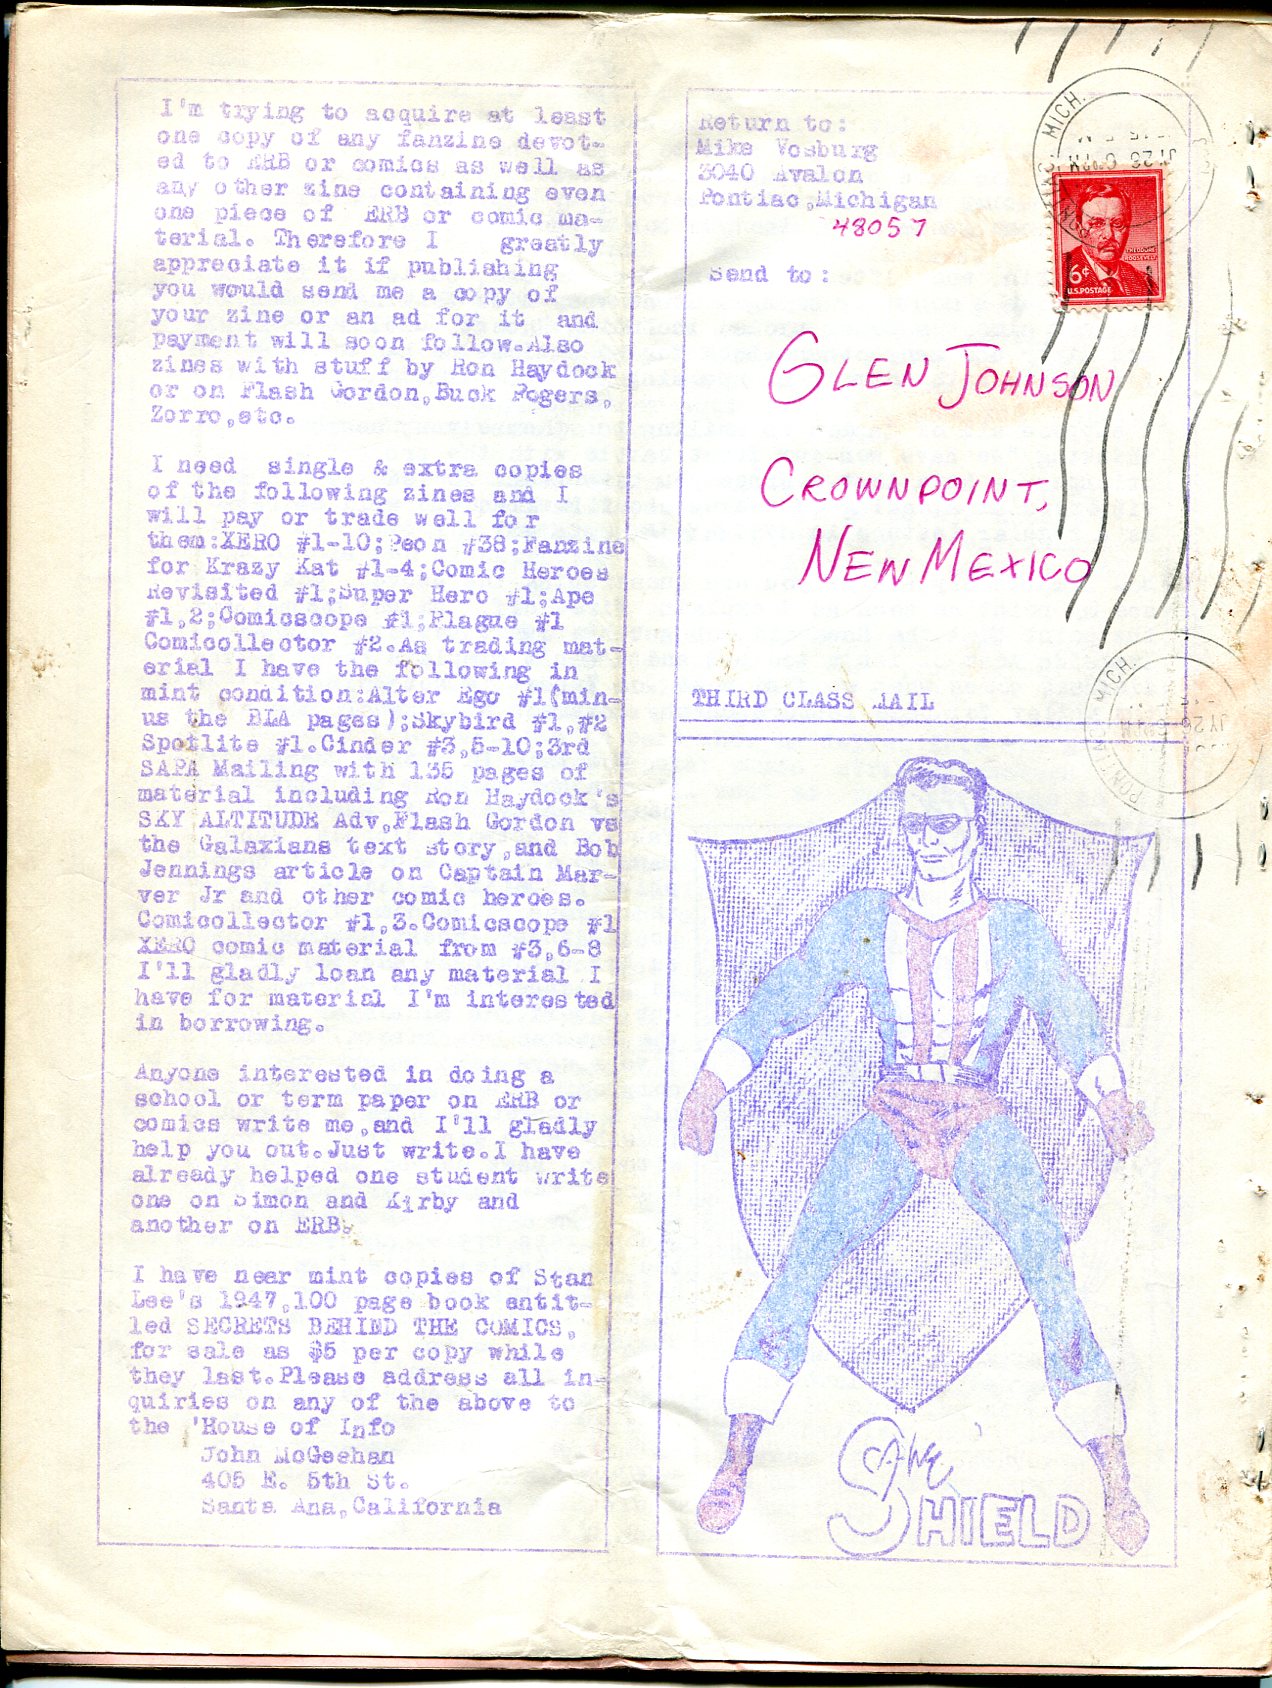 I'm trying to acquire at least
one copy of any fanzine devot-
ed to ERB or comics as well as
any other zine containing even
one piece of ERB or comic ma-
terial. Therefore I greatly
appreciate it if publishing
you would send me a copy of
your zine or an ad for it and
payment will soon follow.Also
zines with stuff by Ron Haydock
or on Flash Gordon,Buck Rogers,
Zorro,etc.
I need single & extra copies
of the following zines and I
will pay or trade well for
them:XERO #1-10;Peon #38;Fanzine
for Krazy Kat #1-4;Comic Heroes
Revisited #1;Super Hero #1;Ape
#1,2;Comicscope #1;Plague #1
Comicollector #2.As trading mat-
erial I have the following in
mint condition:Alter Ego #1(min-
us the BLA pages);Skybird #1,#2
Spotlite #1.Cinder #3,5-10;3rd
SAPA Mailing with 135 pages of
material including Ron Haydock's
SKY ALTITUDE Adv,Flash Gordon vs
the Galaxians text story,and Bob
Jennings article on Captain Mar-
ver Jr and other comic heroes.
Comicollector #1,3.Comicscope #1
XERO comic material from #3,6-8
I'll gladly loan any material I
have for material I'm interested
in borrowing.
Anyone interested in doing a
school or term paper on ERB or
comics write me,and I'll gladly
help you out.Just write.I have
already helped one student write
one on Simon and Kirby and
another on ERB.
I have near mint copies of Stan
Lee's 1947,100 page book entit-
led SECRETS BEHIND THE COMICS,
for sale as $5 per copy while
they last.Please address all in-
quiries on any of the above to
the 'House of Info
John McGeehan
405 E. 5th St.
Santa Ana,California
Return to:
Mike Vosburg
3040 Avalon
Pontiac,Michigan
48057
Send to:
GLEN JOHNSON
CROWNPOINT,
NEW MEXICO
THIRD CLASS MAIL
MICH.
THEODORE
ROOSEVELT
6¢
U.S.POSTAGE
MICH.
The
SHIELD